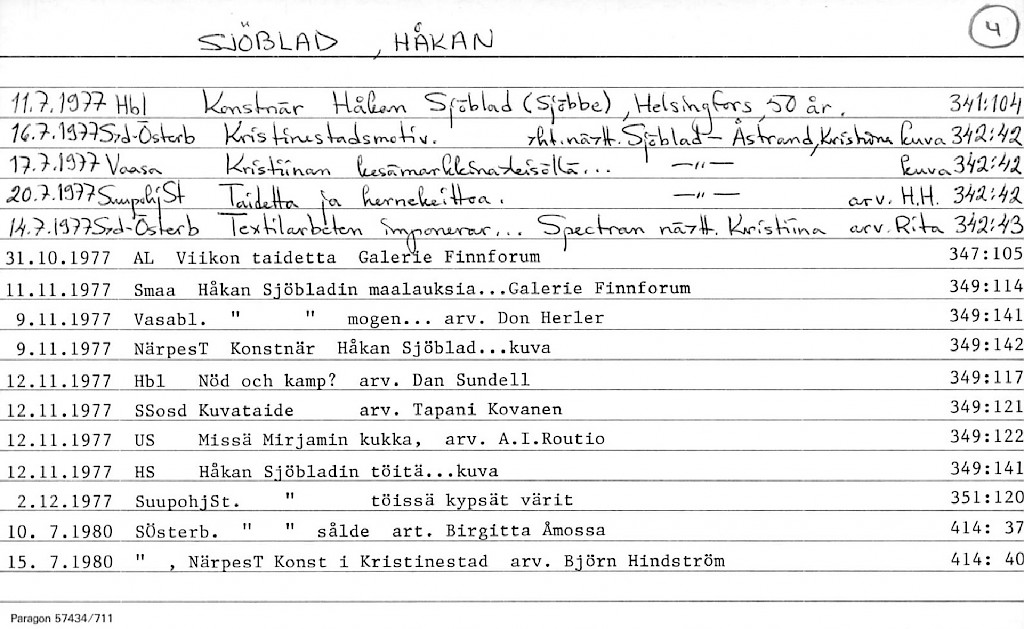 SJÖBLAD , HÅKAN 4
11.7.1977 Hbl Konstnär Håkan Sjöblad (Sjöbbe), Helsingfors, 50 år. 341:104
16.7.1977 Syd-Österb Kristinestadsmotiv. yht.näytt. Sjöblad - Åstrand, Kristiina kuva 342:42
17.7.1977 Vaasa Kristiinan kesämarkkinateisöltä... —"— kuva 342:42
20.7.1977 SuupohjSt Taidetta ja hernekeittoa. —"— arv. H.H. 342:42
14.7.1977 Syd-Österb Textilarbeten imponerar... Spectran näytt. Kristiina arv. Rita 342:43
31.10.1977 AL Viikon taidetta Galerie Finnforum 347:105
11.11.1977 Smaa Håkan Sjöbladin maalauksia...Galerie Finnforum 349:114
9.11.1977 Vasabl. " " mogen... arv. Don Herler 349:141
9.11.1977 NärpesT Konstnär Håkan Sjöblad...kuva 349:142
12.11.1977 Hbl Nöd och kamp? arv. Dan Sundell 349:117
12.11.1977 SSosd Kuvataide arv. Tapani Kovanen 349:121
12.11.1977 US Missä Mirjamin kukka, arv. A.I.Routio 349:122
12.11.1977 HS Håkan Sjöbladin töitä...kuva 349:141
2.12.1977 SuupohjSt. " töissä kypsät värit 351:120
10. 7.1980 SÖsterb. " " sålde art. Birgitta Åmossa 414: 37
15. 7.1980 " , NärpesT Konst i Kristinestad arv. Björn Hindström 414: 40
Paragon 57434/711